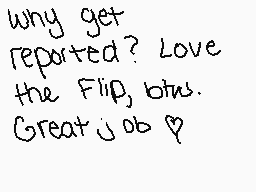 Why get
reported? Love
the Flip, btws.
Great job ♡